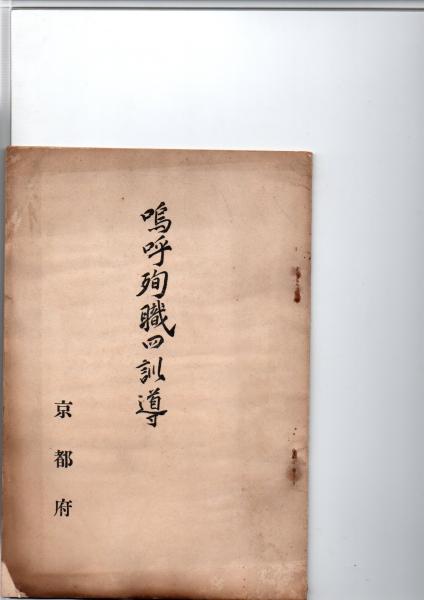 嗚呼殉職四訓導
京都府